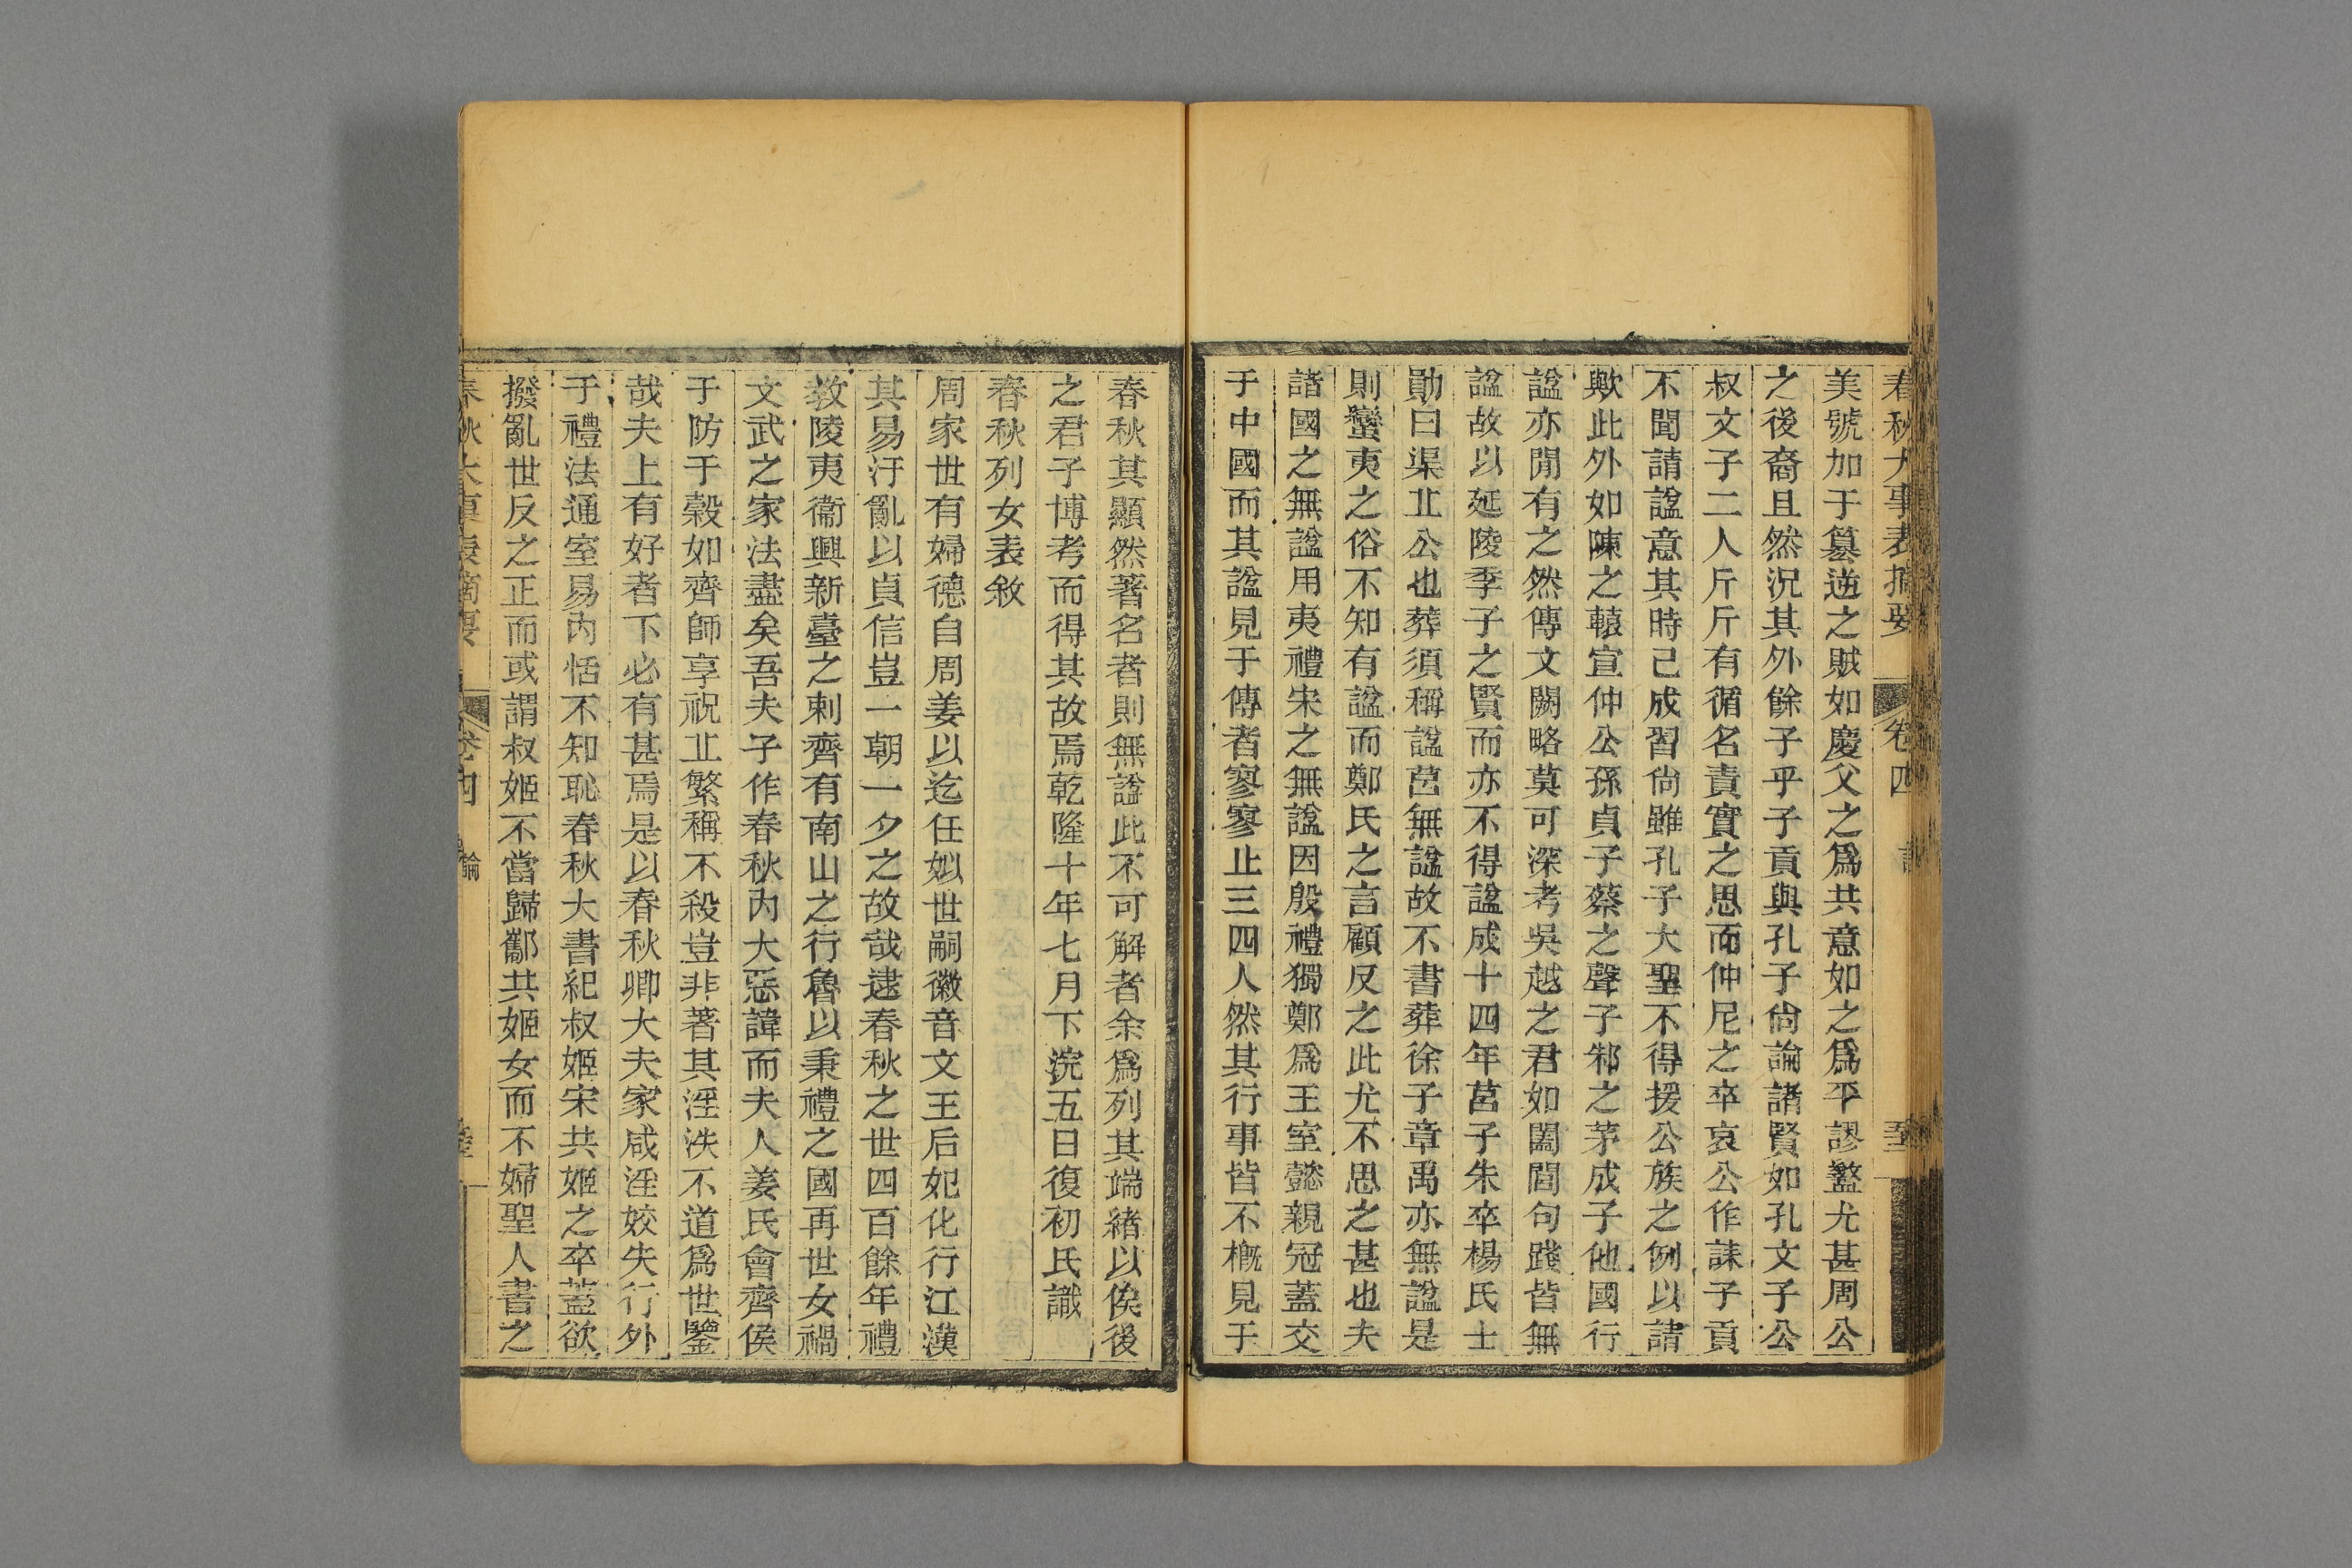 春秋大事表摘要 卷四 論
美號加于篡逆之賊如慶父之爲共意如之爲平謬盭尤甚周公
之後裔且然況其外餘子乎子貢與孔子尙論諸賢如孔文子公
叔文子二人斤斤有循名責實之思而仲尼之卒哀公作誄子貢
不聞請諡意其時已成習尙雖孔子大聖不得援公族之例以請
歟此外如陳之轅宣仲公孫貞子蔡之聲子邾之茅成子他國行
諡亦閒有之然傳文闕略莫可深考吳越之君如闔閭句踐皆無
諡故以延陵季子之賢而亦不得諡成十四年莒子朱卒楊氏士
勛曰渠丘公也葬須稱諡莒無諡故不書葬徐子章禹亦無諡是
則蠻夷之俗不知有諡而鄭氏之言顧反之此尤不思之甚也夫
諸國之無諡用夷禮宋之無諡因殷禮獨鄭爲王室懿親冠蓋交
于中國而其諡見于傳者寥寥止三四人然其行事皆不槪見于
春秋其顯然著名者則無諡此不可解者余爲列其端緒以俟後
之君子博考而得其故焉乾隆十年七月下浣五日復初氏識
春秋列女表敘
周家世有婦德自周姜以迄任姒世嗣徽音文王后妃化行江漢
其易汙亂以貞信豈一朝一夕之故哉逮春秋之世四百餘年禮
敎陵夷衞興新臺之刺齊有南山之行魯以秉禮之國再世女禍
文武之家法盡矣吾夫子作春秋內大惡諱而夫人姜氏會齊侯
于防于穀如齊師享祝丘繁稱不殺豈非著其淫泆不道爲世鑒
哉夫上有好者下必有甚焉是以春秋卿大夫家咸淫姣失行外
于禮法通室易內恬不知恥春秋大書紀叔姬宋共姬之卒蓋欲
撥亂世反之正而或謂叔姬不當歸酅共姬女而不婦聖人書之
春秋大事表摘要 卷四 論